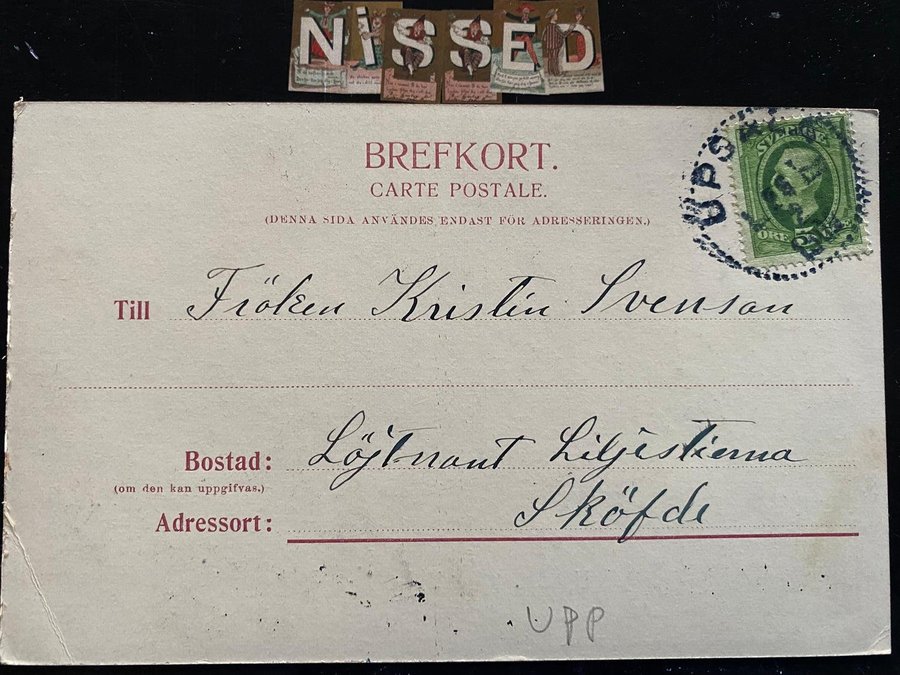 NISSED
BREFKORT.
CARTE POSTALE.
(DENNA SIDA ANVÄNDES ENDAST FÖR ADRESSERINGEN.)
SVERIGE
ÖRE
Till Fröken Kristin Svenson
Bostad: Löjtnant Liljestierna
(om den kan uppgifvas.)
Adressort: Sköfde
UPP